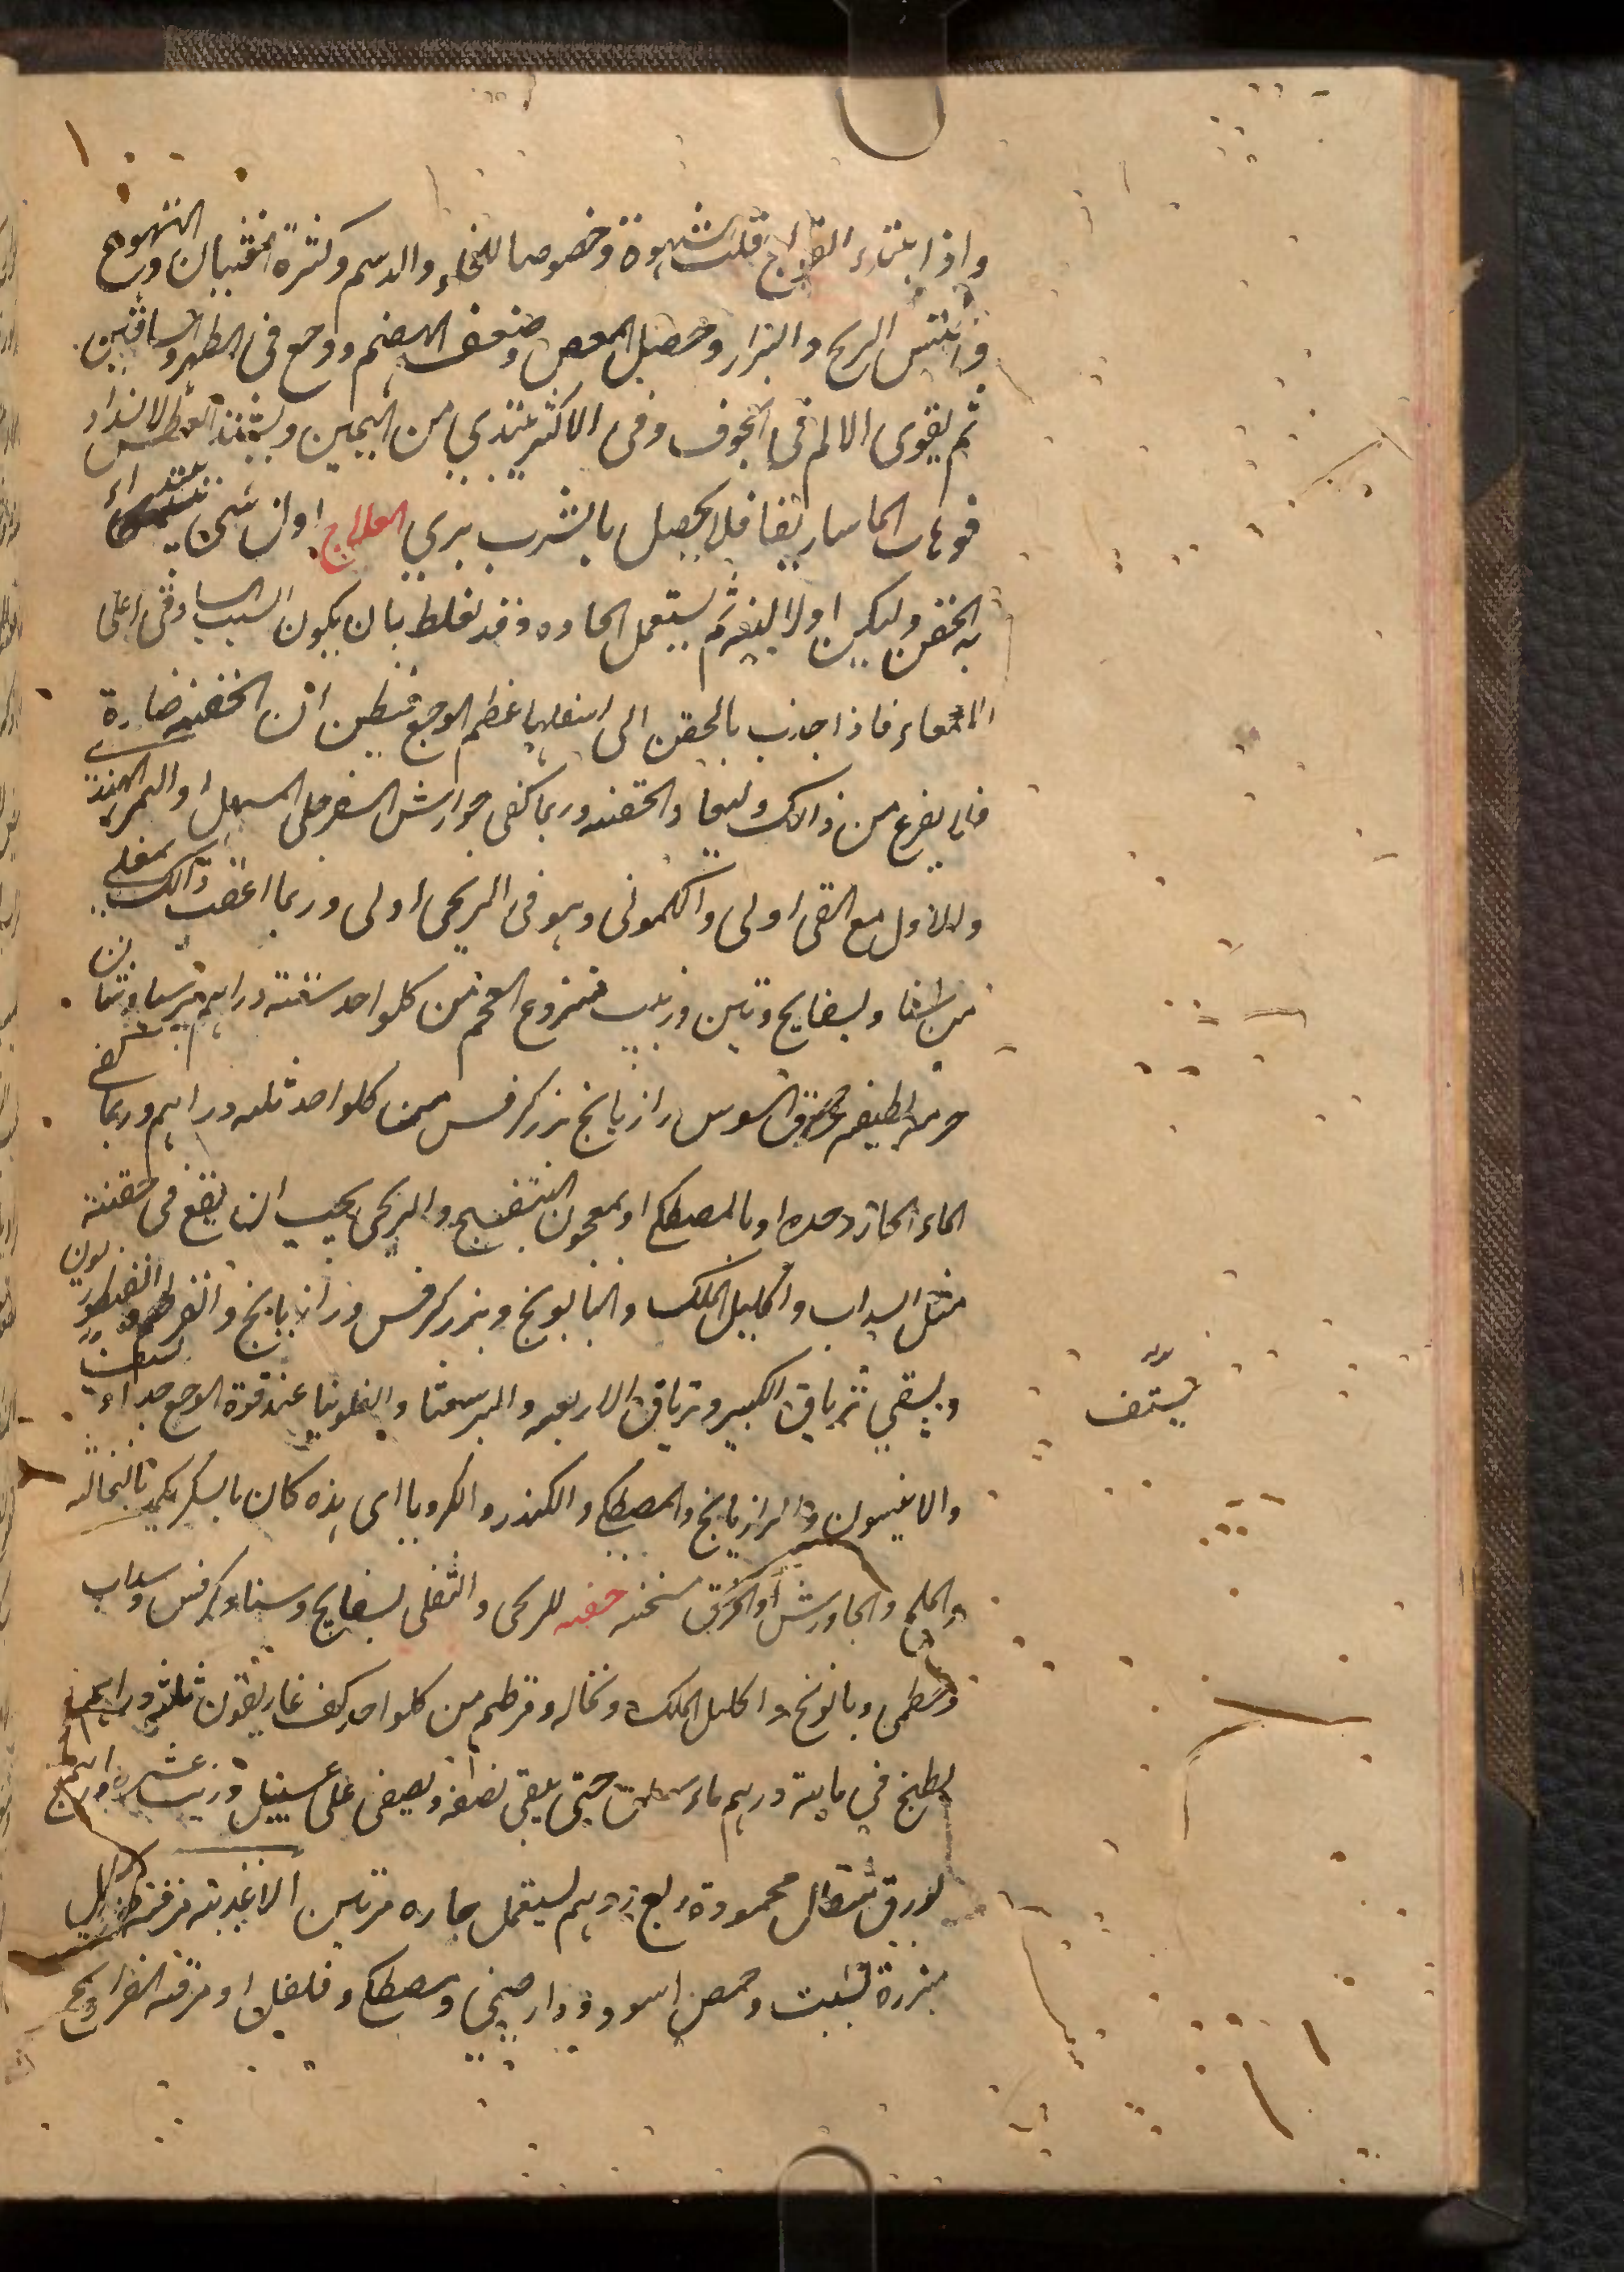 واذا ابتدء القولنج قلت الشهوة وخصوصا للحلو والدسم وكثرة الغثيان والتهوع
واحتبس الريح والبراز وحصل المغص وضعف الهضم ووجع فى الظهر والساقين
ثم يقوى الالم فى الجوف وفى الاكثر يبتدي من اليمين ويشتد العطش لانسداد
فوهات الماساريقا فلا يحصل بالشرب بري العلاج اول شى يبتداء
به الحقن وليكن اولا لينه ثم يستعمل الحاده وقد تغلط بان يكون السبب السادفى اعلى
الامعاء فاذا جذب بالحقن الى اسفلها عظم الوجع فيظن ان الحقنه ضارة
فلا يفزع من ذالك وليعاد الحقنه وربما كفى جوارش السفرجلى المسهل او التمر الهندى
والاول مع القى اولى والكمونى وهو فى الريحى اولى وربما اعقب ذالك بمغلى
من سنا وبسفايج وتين وزبيب منزوع العجم من كلواحد ستة دراهم برسياوشان
حزمه لطيفه عرق السوس رازيانج بزر كرفس من كلواحد ثلثه دراهم وربما كفى
الماء الحار وحده او بالمصطكى او بمعجون البنفسج والريحى يجب ان يقع فى حقنته
مثل السداب واكليل الملك والبابونج وبزر كرفس ورازيانج والقرطم والقنطوريون
ويسقى ترياق الكبير وترياق الاربعه والبرشعثا والفلونيا عند قوة الوجع جداء يستف
يستف
والانيسون والرازيانج والمصطكى والكندر والكرويا اى هذه كان بالسكر يكمد بالنخاله
والملح والجاورش او الخرق مسخنه حقنه للريحى والثفلى بسفايج وسناء وكرفس وسداب
وخطمى وبابونج واكليل الملك ونخاله وقرطم من كلواحد كف غاريقون ثلثه دراهم
يطبخ فى مايته درهم ماء سلق حتى يبقى نصفه ويصفى على عسل وزيت عشره دراهم
بورق مثقال محمودة ربع درهم يستعمل حاره مرتين الاغذيه مرقه
بزرة شبت وحمص اسود ودارصينى ومصطكى وفلفل او مرقة الفراويج